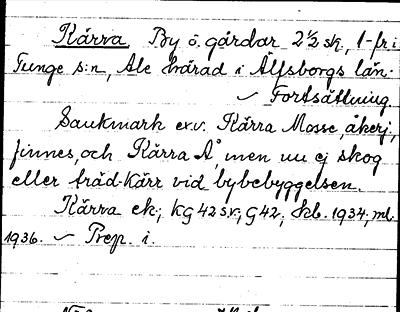 Kärra By o. gårdar 2½ sk, 1-fr i
Tunge s:n, Ale härad i Älfsborgs län.
Fortsättning.
Sankmark ex.v. Kärra Mosse, åkerj,
finnes, och Kärra Å, men nu ej skog
eller träd-Kärr vid bybebyggelsen.
Kärra ek; KG 42 s.v.; G 42; skb. 1934; ml.
1936. ~ Prep. i.